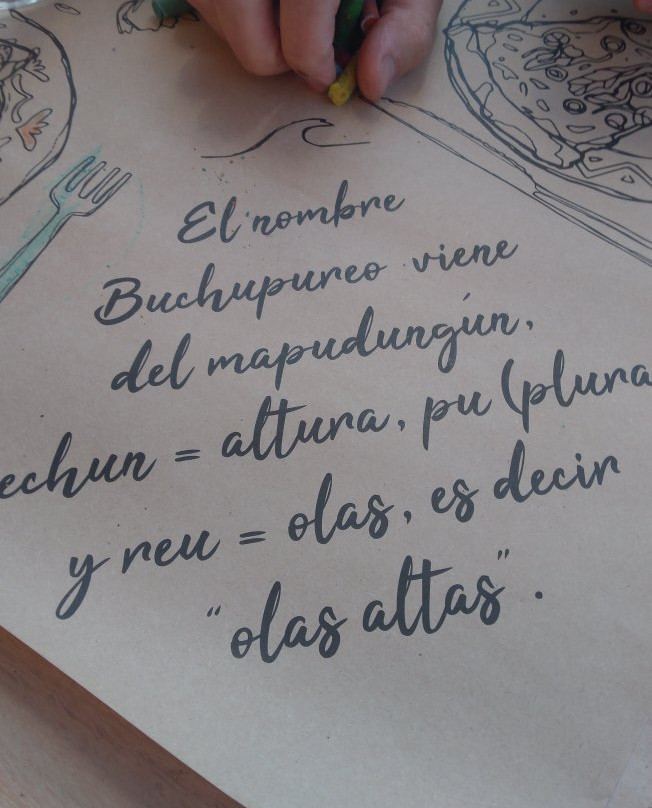 El nombre
Buchupureo viene
del mapudungún,
echun = altura, pu (plura
y reu = olas, es decir
"olas altas".